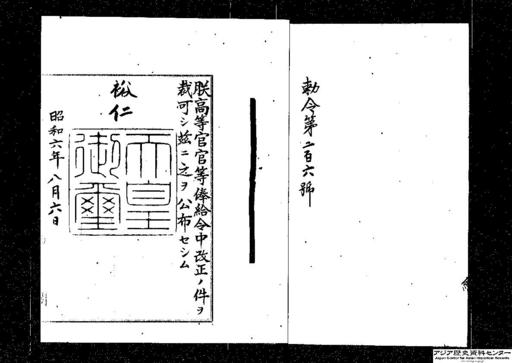 勅令第二百六號
朕高等官官等俸給令中改正ノ件ヲ
裁可シ茲ニ之ヲ公布セシム
裕仁
天皇
御璽
昭和六年八月六日
アジア歴史資料センター
Japan Center for Asian Historical Records